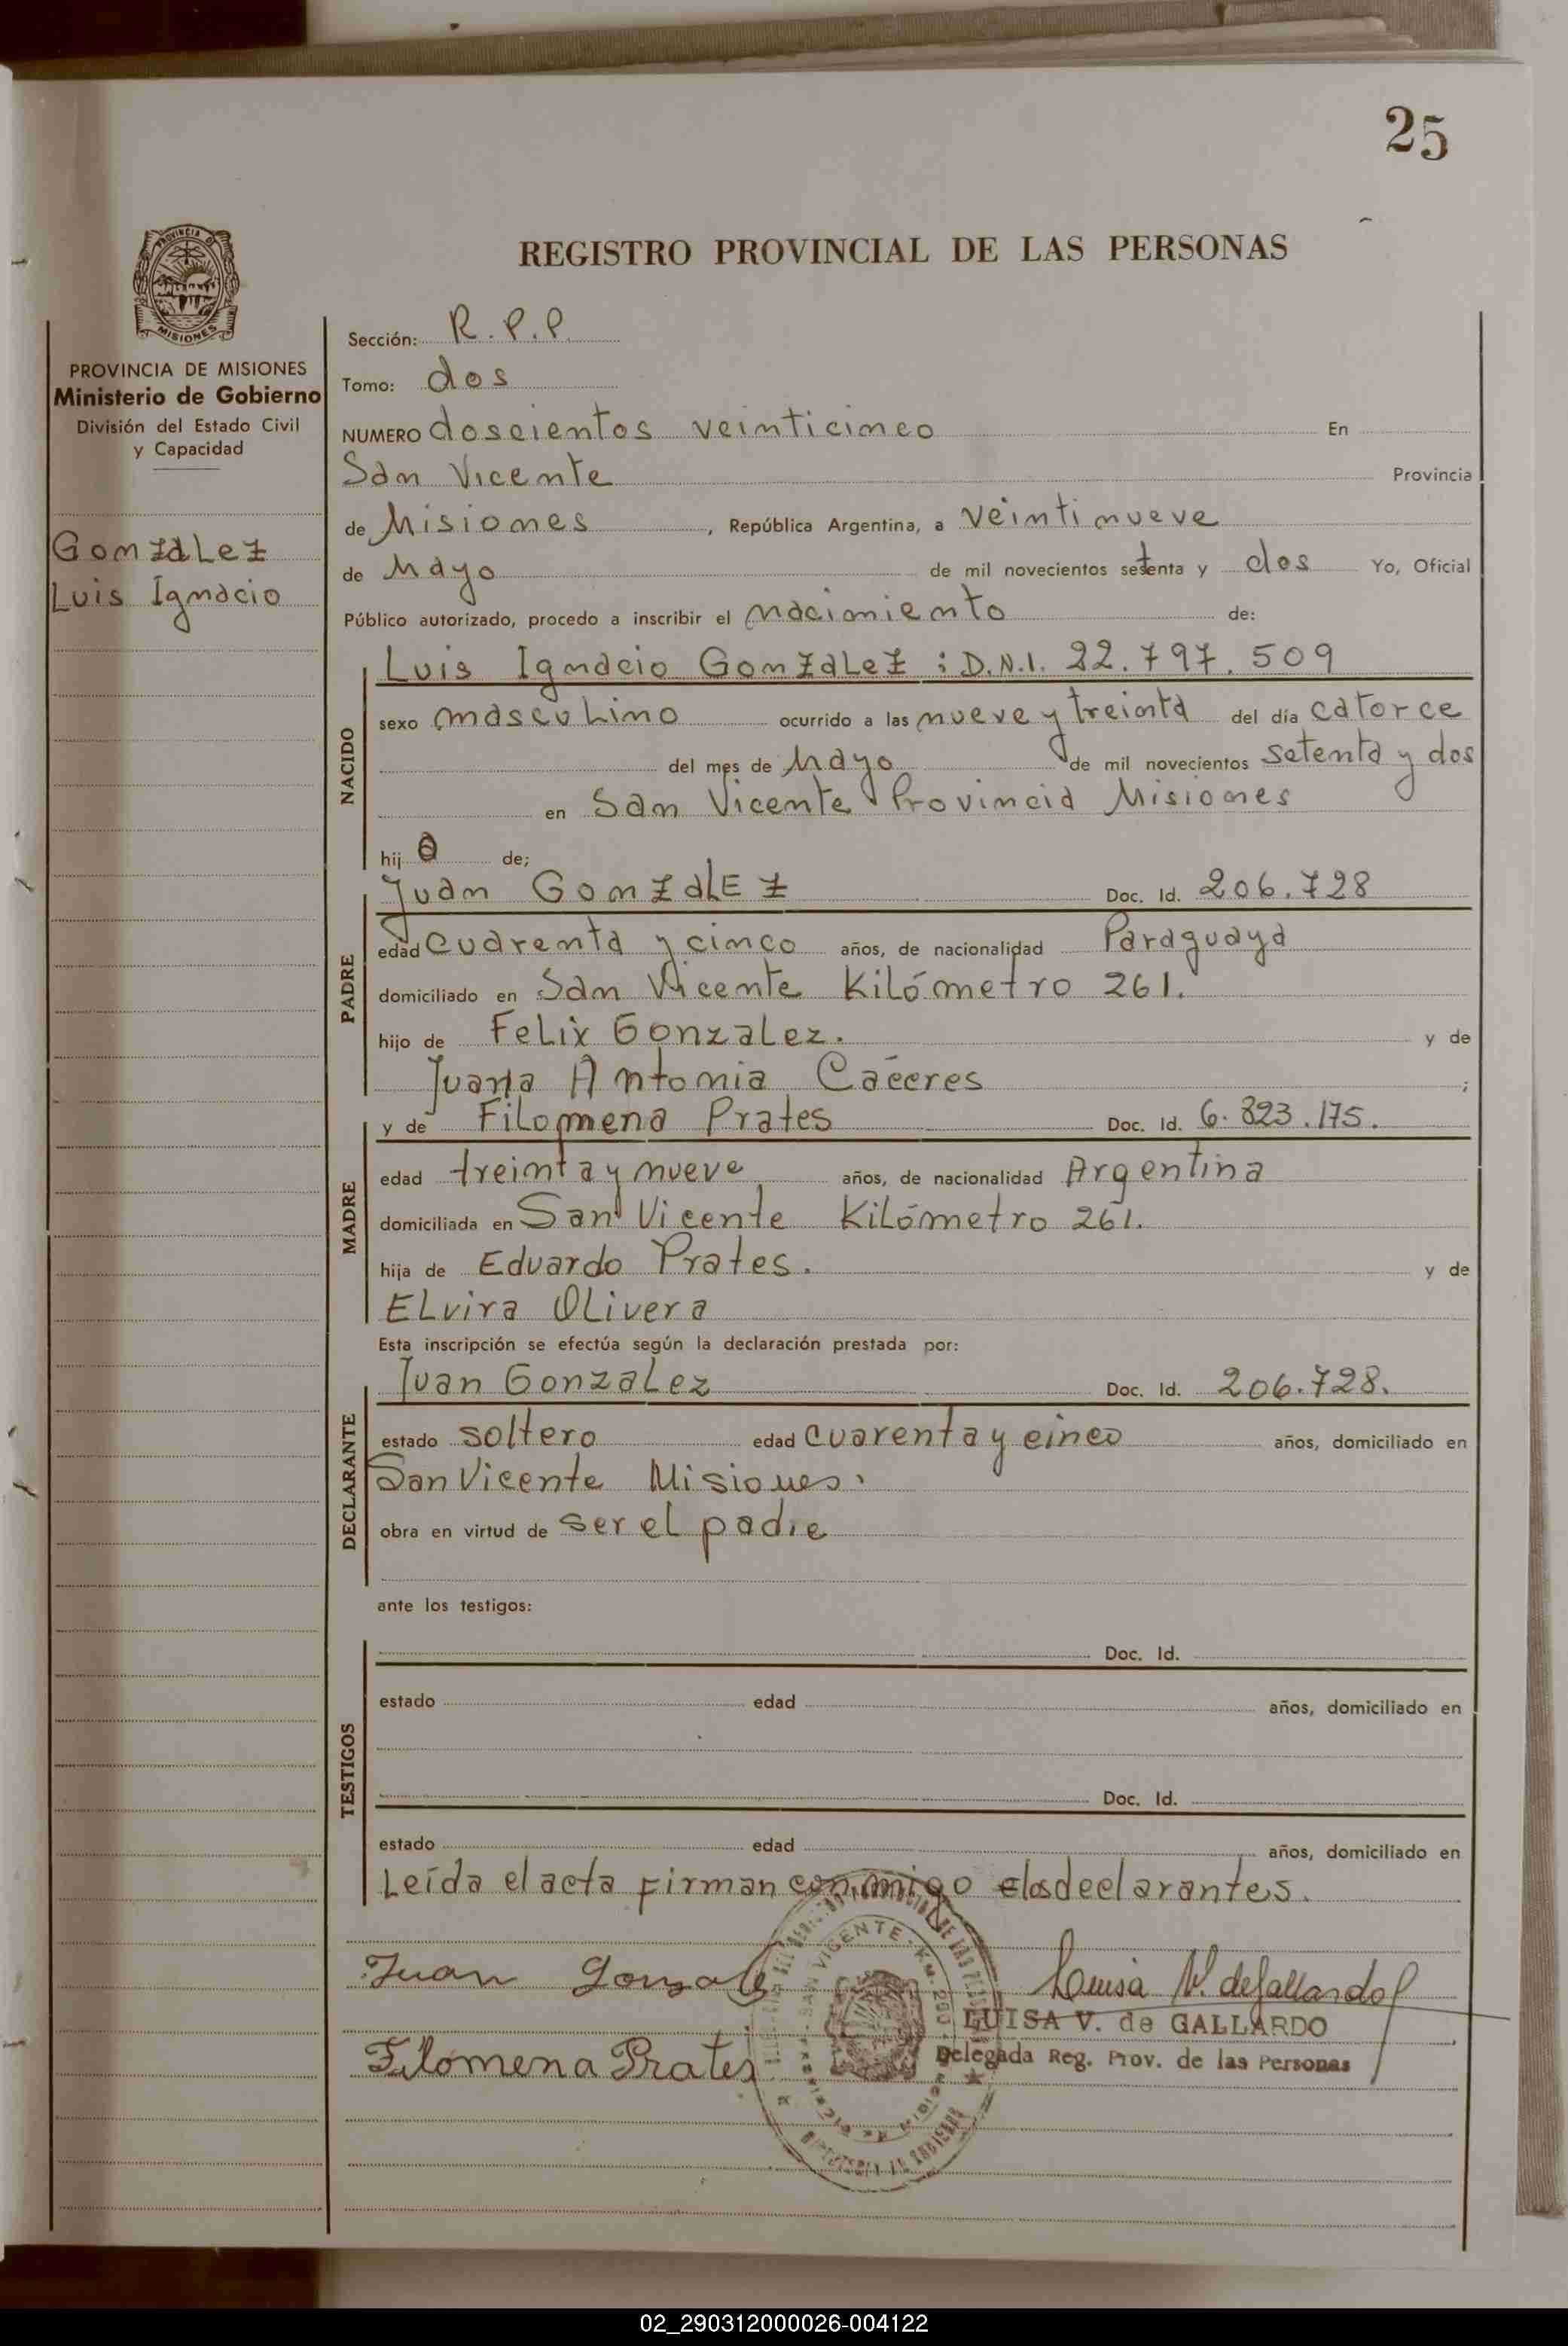 25
REGISTRO PROVINCIAL DE LAS PERSONAS
PROVINCIA DE MISIONES
Ministerio de Gobierno
División del Estado Civil
y Capacidad
Gonzalez
Luis Ignacio
Sección: R.P.P.
Tomo: dos
NUMERO doscientos veinticinco En
San Vicente Provincia
de Misiones, República Argentina, a veintinueve
de Mayo de mil novecientos setenta y dos Yo, Oficial
Público autorizado, procedo a inscribir el nacimiento de:
NACIDO
Luis Ignacio Gonzalez : D.N.I. 22.797.509
sexo masculino ocurrido a las nueve y treinta del día catorce
del mes de Mayo de mil novecientos setenta y dos
en San Vicente Provincia Misiones
hijo de;
PADRE
Juan Gonzalez Doc. Id. 206.728
edad cuarenta y cinco años, de nacionalidad Paraguaya
domiciliado en San Vicente Kilómetro 261.
hijo de Felix Gonzalez. y de
Juana Antonia Caceres ;
MADRE
y de Filomena Prates Doc. Id. 6.823.175.
edad treinta y nueve años, de nacionalidad Argentina
domiciliada en San Vicente Kilómetro 261.
hija de Eduardo Prates. y de
Elvira Olivera
Esta inscripción se efectúa según la declaración prestada por:
DECLARANTE
Juan Gonzalez Doc. Id. 206.728.
estado soltero edad cuarenta y cinco años, domiciliado en
San Vicente Misiones.
obra en virtud de ser el padre
ante los testigos:
TESTIGOS
Doc. Id.
estado edad años, domiciliado en
Doc. Id.
estado edad años, domiciliado en
Leída el acta firman conmigo los declarantes.
Juan Gonzalez
Luisa V. de Gallardo
LUISA V. de GALLARDO
Delegada Reg. Prov. de las Personas
Filomena Prates
SAN VICENTE
MISIONES
02_290312000026-004122